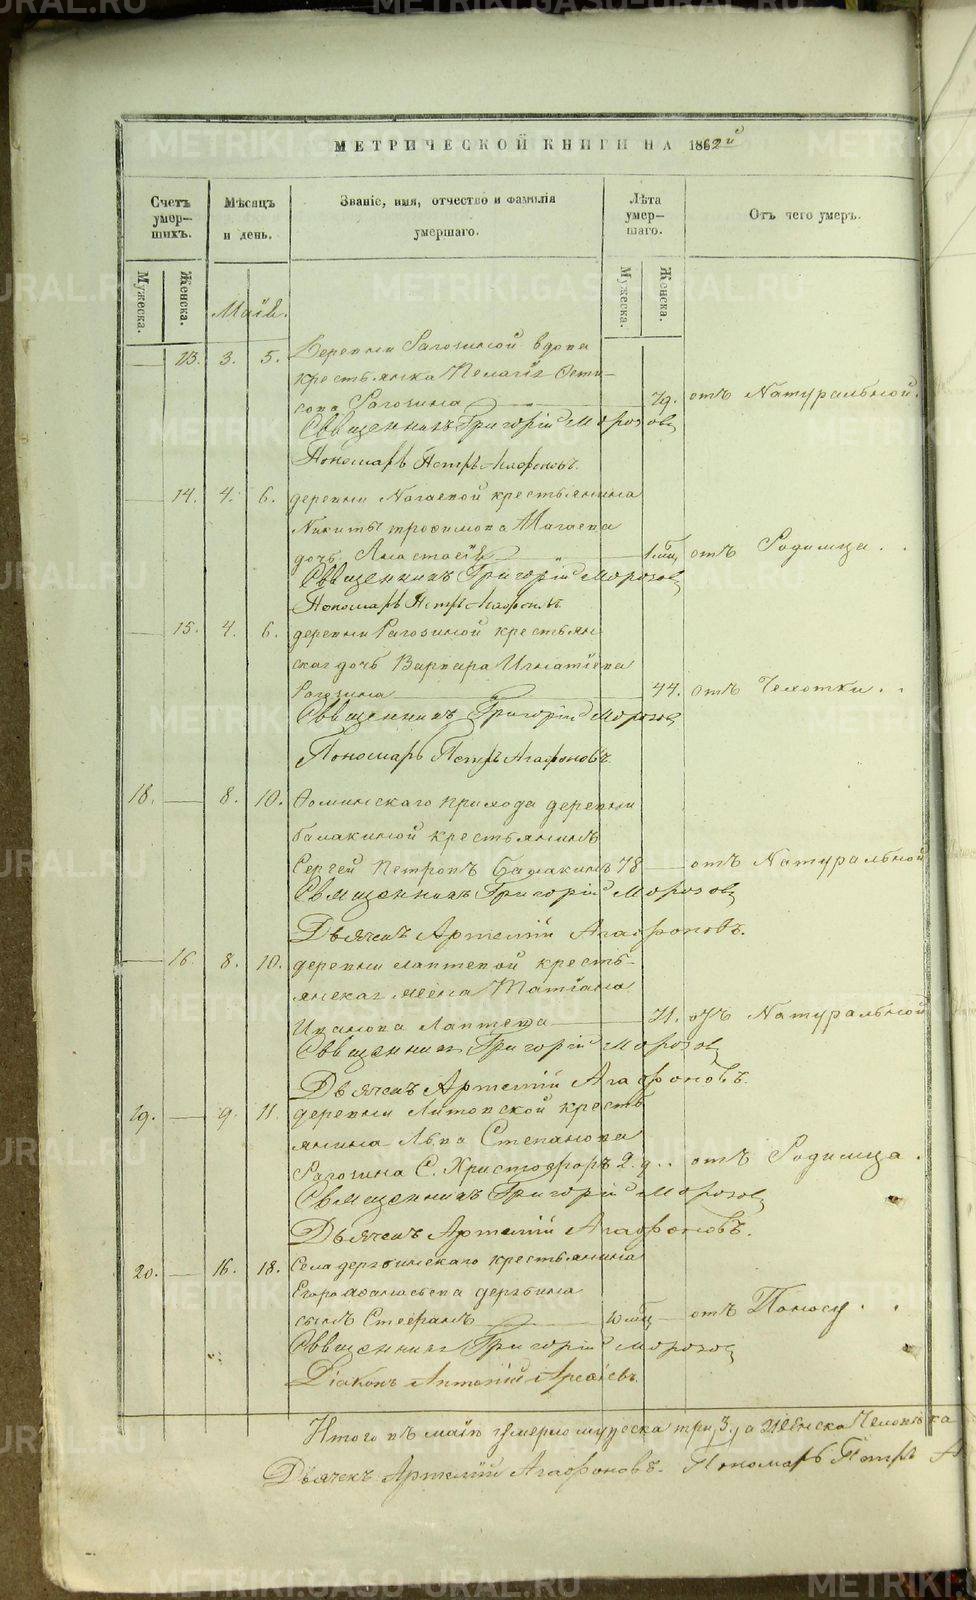 МЕТРИЧЕСКОЙ КНИГИ НА 1862й
Счетъ умер-шихъ.
Мѣсяцъ и день.
Званіе, имя, отчество и фамилія умершаго.
Лѣта умер-шаго.
Отъ чего умеръ.
Мужеска.
Женска.
Мужеска.
Женска.
Маій.
13. 3. 5. Деревни Рагозиной вдова
крестьянка Пелагія
Рагозина 79. отъ Натуральной.
Священникъ Григорій Морозовъ
Пономарь Петръ Агафоновъ.
14. 4. 6. деревни Нагаевой крестьянина
Никиты трофимова Нагаева
дочь Анастасія 1 мц отъ Родимца.
Священникъ Григорій Морозовъ
Пономарь Петръ Агафоновъ
15. 4. 6. деревни Рагозиной крестьян-
ская дочь Варвара Игнатіева
Рагозина 44. отъ Чехотки.
Священникъ Григорій Морозовъ
Пономарь Петръ Агафоновъ.
18. 8. 10. Фоминскаго прихода деревни
балакиной крестьянинъ
Сергей Петровъ Балакинъ 78 отъ Натуральной
Священникъ Григорій Морозовъ
Дьячекъ Артемій Агафоновъ.
16. 8. 10. деревни лаптевой кресть-
янская жена Татіана
Иванова Лаптева 71. отъ Натуральной
Священникъ Григорій Морозовъ
Дьячекъ Артемій Агафоновъ.
19. 9. 11. деревни Литовской кресть
янина Льва Степанова
Рагозина С. Христофоръ 2. д. отъ Родимца.
Священникъ Григорій Морозовъ
Дьячекъ Артемій Агафоновъ.
20. 16. 18. Села дерябинскаго крестьянина
Егора Афанасьева дерябина
сынъ Стефанъ 10 мц отъ Поносу.
Священникъ Григорій Морозовъ
Діаконъ Антоній Арефьевъ.
Итого въ маіѣ умерло мужеска три, 3. а женска Человѣка
Дьячекъ Артемій Агафоновъ. Пономарь Петръ А
METRIKI.GASO-URAL.RU